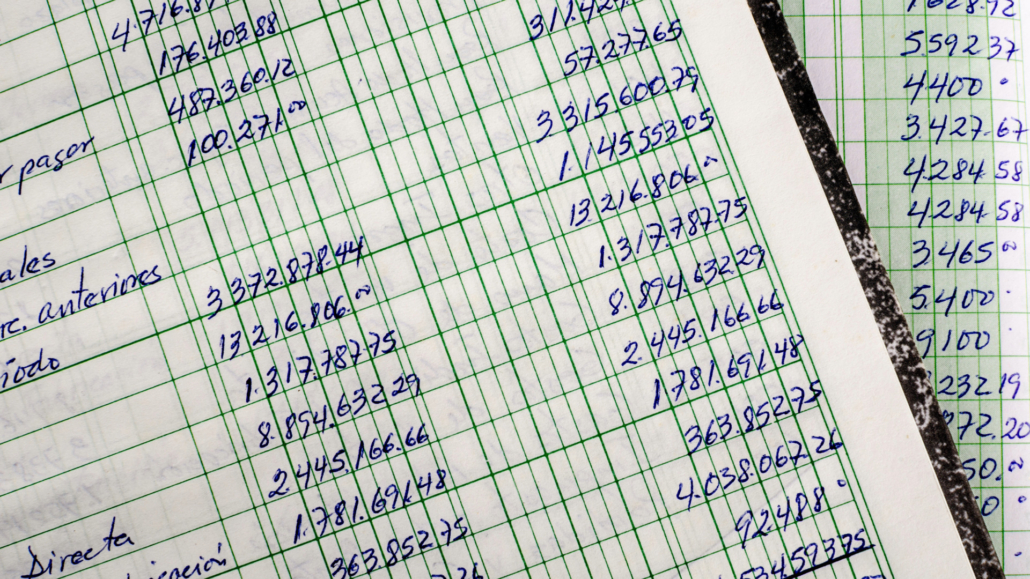 4.716.8
176.403.88
487.360.12
r pagar 100.271.00
ales
rc. anteriores 3 372.878.44
íodo 13 216.806.00
1.317.787.75
8.894.632.29
2 445.166.66
Directa 1.781.691.48
363.852 75
311.42
57.277.65
3 315.600.79
1.145 553 05
13 216.806.00
1.317.787.75
8.894.632 29
2.445.166 66
1 781.691.48
363.852 75
4.038.067.26
92.488
53 459 3 75
1 628.92
5592 37
4400
3.427.67
4284 58
4284 58
3 465 00
5.400
9100
232 19
72.20
50.00
0